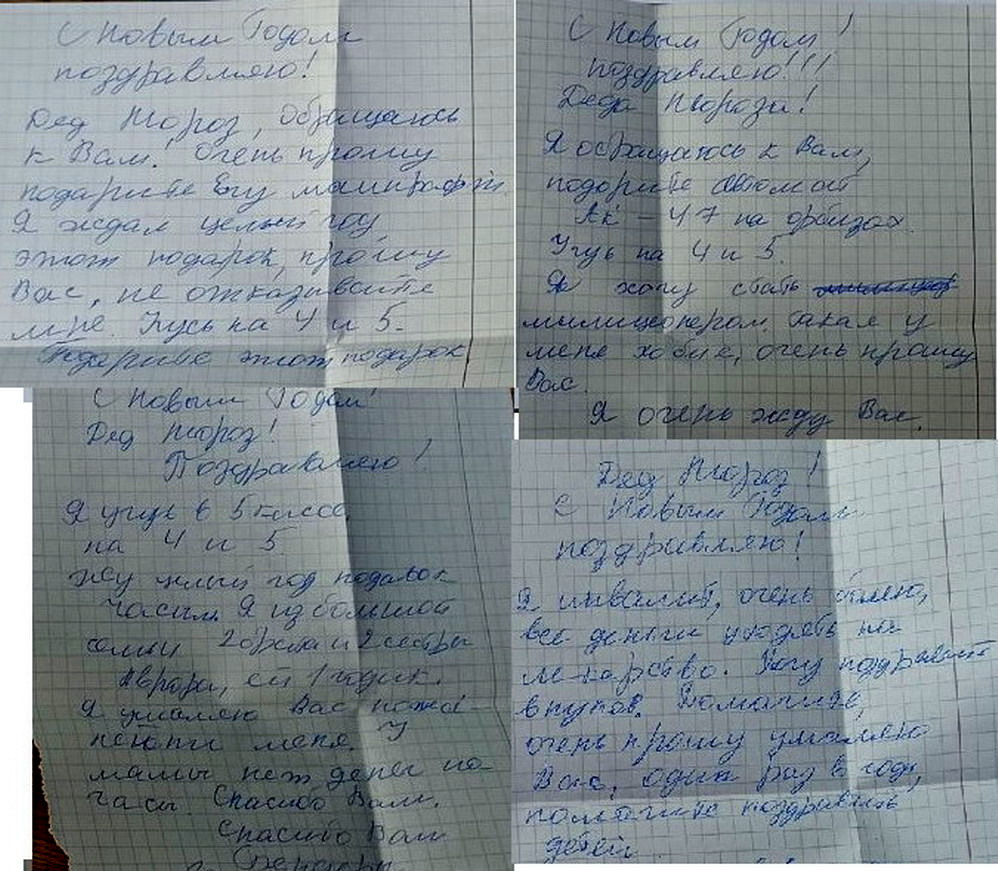 С Новым Годом
поздравляю!
Дед Мороз, Обращаюсь
к Вам! Очень прошу
подарите Егу маинкрафт
Я ждал целый году
этот подарок, прошу
Вас, не отказывайте
мне. Учусь на 4 и 5.
Подарите этот подарок
С Новым Годом!
поздравляю!!!
Деда Мороза!
Я обращаюсь к Вам,
подорите автомат
Ак - 47 на орбизах.
Учусь на 4 и 5.
Я хочу стать
милиционером. Такая у
меня хобие, очень прошу
Вас.
Я очень жду Вас.
С Новым Годом!
Дед Мороз!
Поздравляю!
Я учусь в 5 классе
на 4 и 5.
жду целый год подарок
часы. Я из большой
семьи 2 брата и 2 сестры
Аврора, ей 1 годик.
Я умоляю Вас
меня. У
мамы нет денег на
часы. Спасибо Вам.
Спасибо Вам
Дед Мороз!
С Новым Годом
поздравляю!
Я инвалит, очень болею,
все деньги уходять на
лекарство. Хочу поздравит
внуков. Помагите,
очень прошу умаляю
Вас, один раз в году,
помагите поздравить
детей